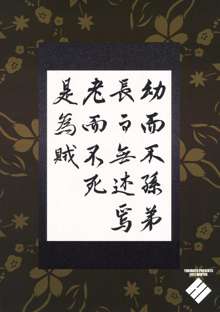 幼而不孫弟
長而無述焉
老而不死
是為賊
PRESENTS